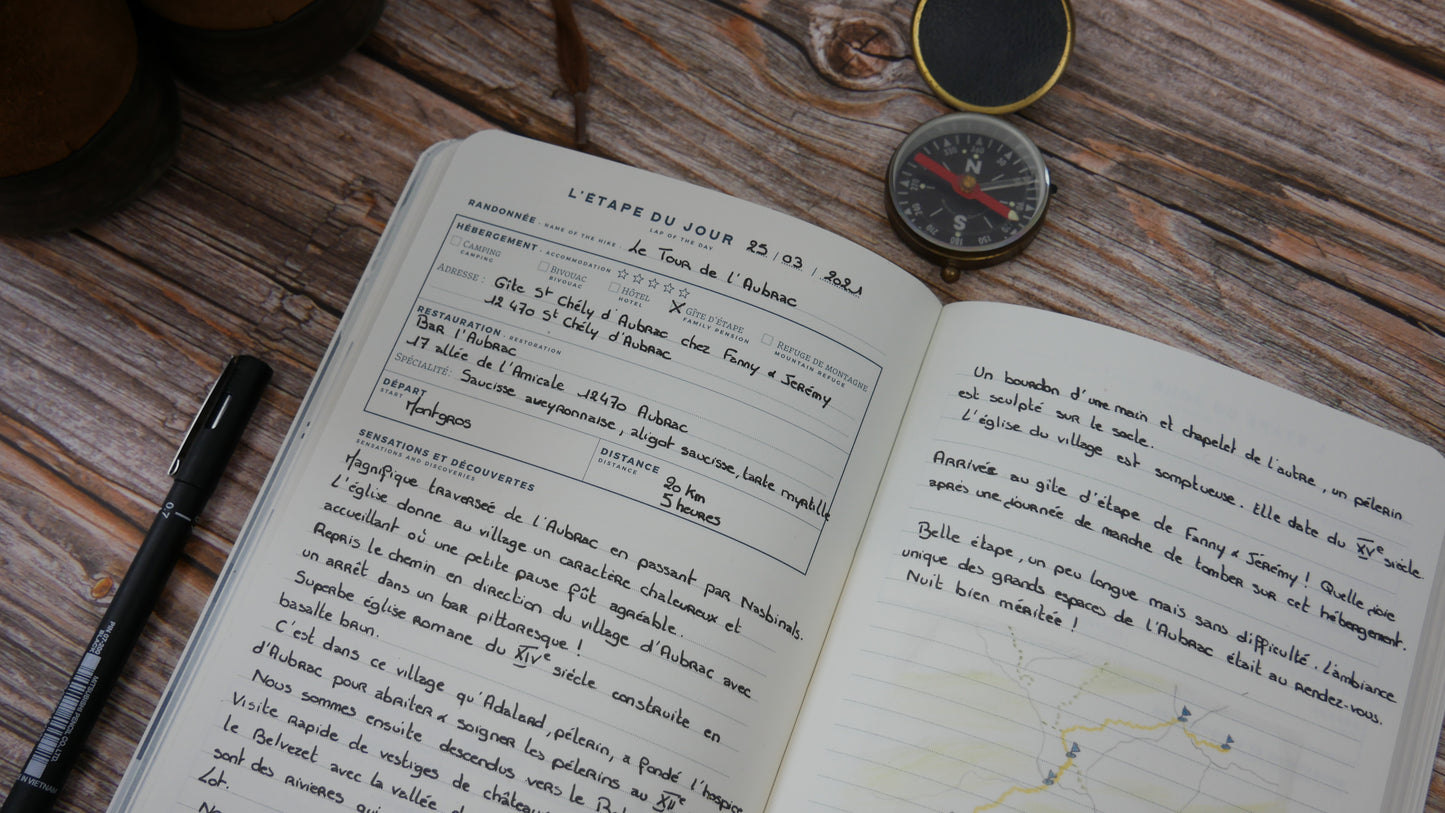 L'ÉTAPE DU JOUR
LAP OF THE DAY
25 / 03 / 2021
RANDONNÉE - NAME OF THE HIKE : Le Tour de l'Aubrac
HÉBERGEMENT - ACCOMMODATION ☆☆☆☆☆
CAMPING
CAMPING
BIVOUAC
BIVOUAC
HÔTEL
HOTEL
X GÎTE D'ÉTAPE
FAMILY PENSION
REFUGE DE MONTAGNE
MOUNTAIN REFUGE
ADRESSE : Gîte St Chély d'Aubrac chez Fanny & Jérémy
12 470 St Chély d'Aubrac
RESTAURATION - RESTORATION
Bar l'Aubrac
17 allée de l'Amicale 12470 Aubrac
SPÉCIALITÉ : Saucisse aveyronnaise, aligot saucisse, tarte myrtille
DÉPART
START
Montgros
DISTANCE
DISTANCE
20 km
5 heures
SENSATIONS ET DÉCOUVERTES
SENSATIONS AND DISCOVERIES
Magnifique traversée de l'Aubrac en passant par Nasbinals.
L'église donne au village un caractère chaleureux et
accueillant où une petite pause fût agréable.
Repris le chemin en direction du village d'Aubrac avec
un arrêt dans un bar pittoresque !
Superbe église romane du XIVe siècle construite en
basalte brun.
C'est dans ce village qu'Adalard, pélerin, a fondé l'hospice
d'Aubrac pour abriter & soigner les pélerins au XIIe
Nous sommes ensuite descendus vers le
Visite rapide de vestiges de
le Belvezet avec la vallée
sont des rivieres
Lot.
Un bourdon d'une main et chapelet de l'autre, un pélerin
est sculpté sur le socle.
L'église du village est somptueuse. Elle date du XVe siècle.
Arrivés au gîte d'étape de Fanny & Jérémy ! Quelle joie
après une journée de marche de tomber sur cet hébergement.
Belle étape, un peu longue mais sans difficulté. L'ambiance
unique des grands espaces de l'Aubrac était au rendez-vous.
Nuit bien méritée !
N
S
0.7
PIN 07-200
BLACK
MITSUBISHI PENCIL CO., LTD.
IN VIETNAM